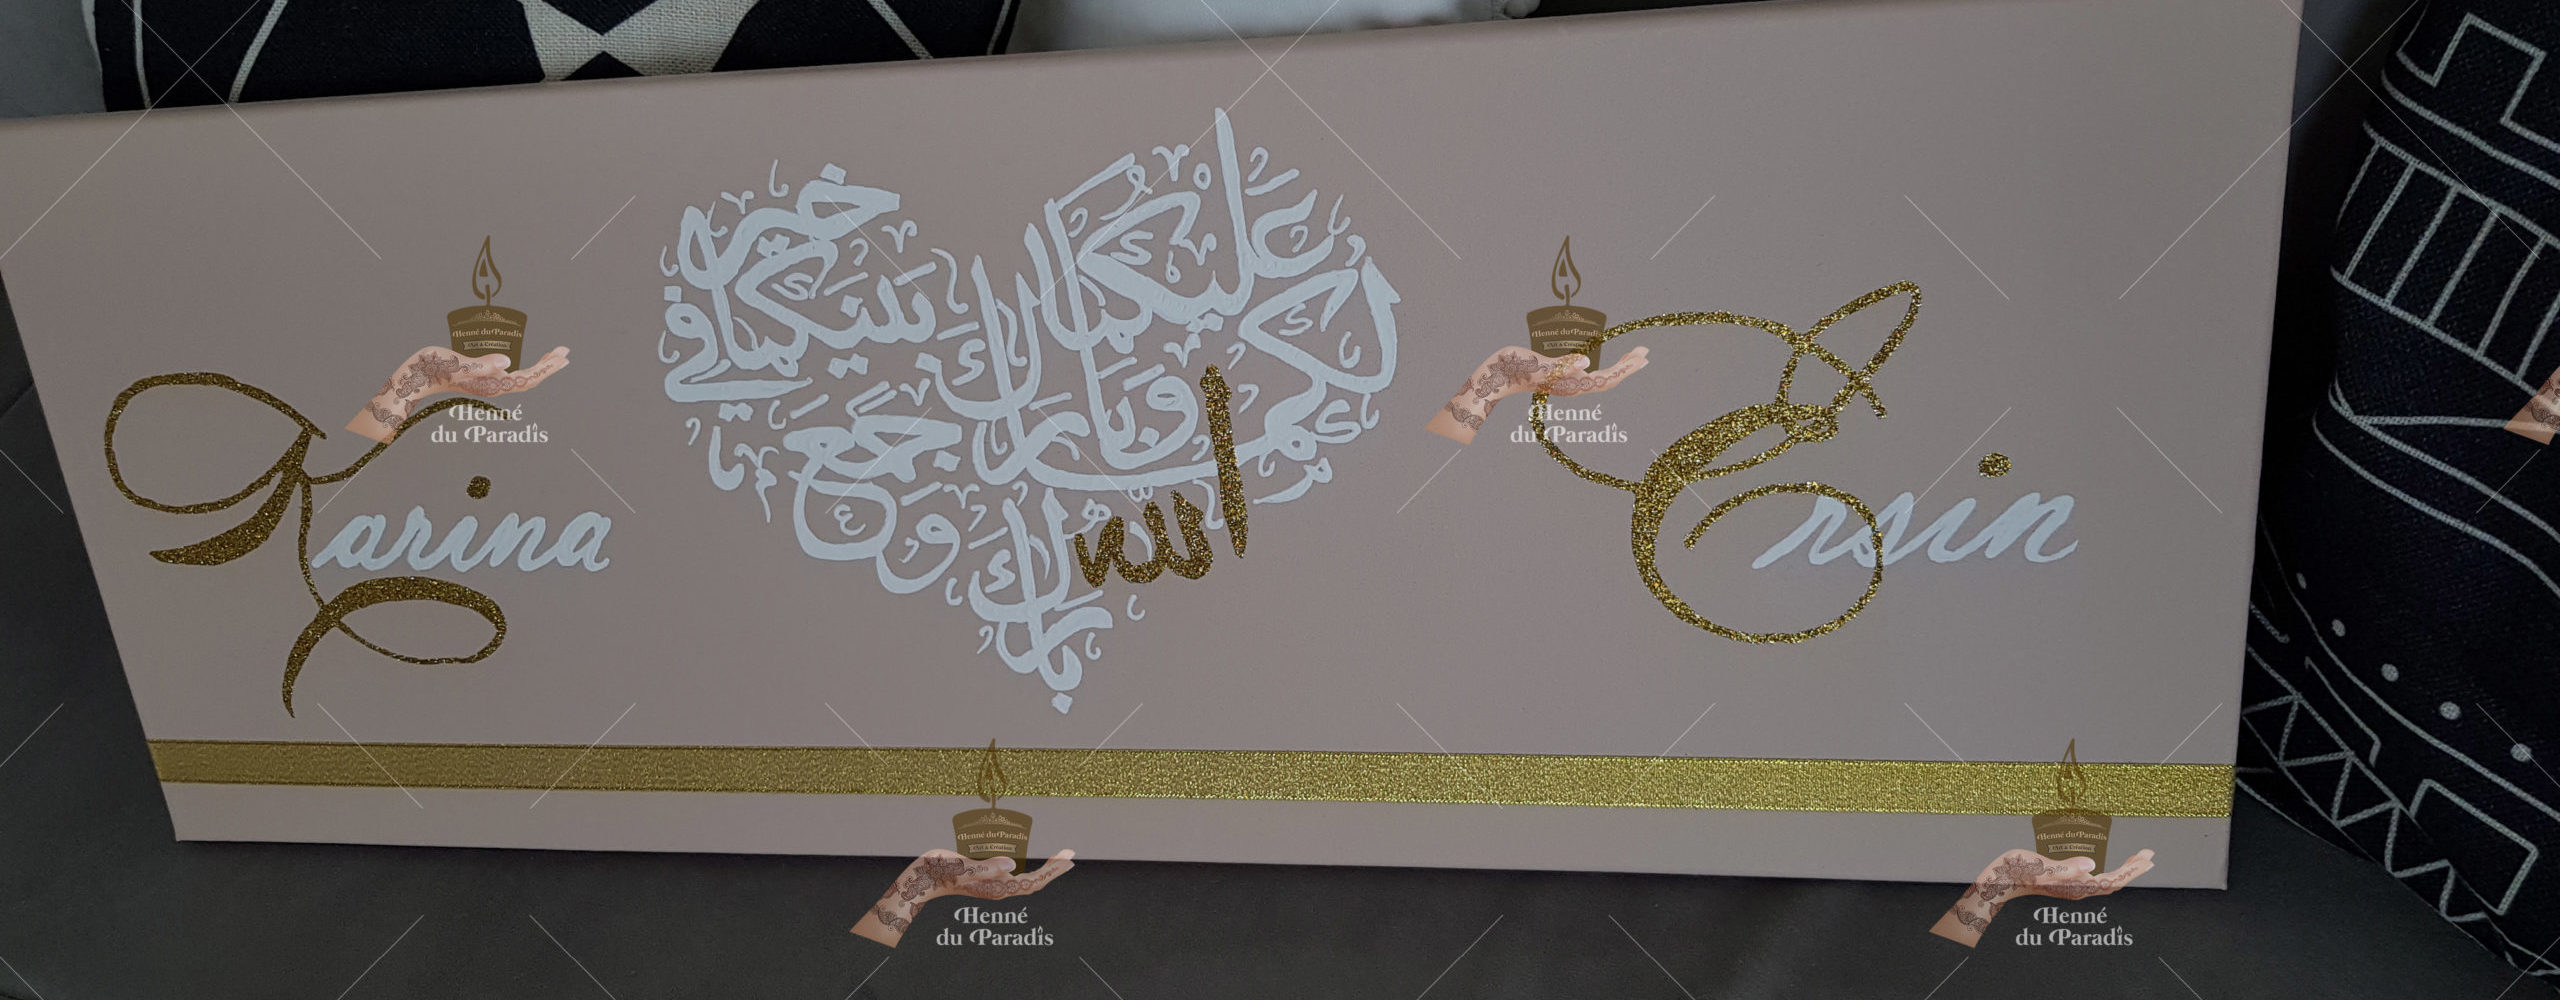 Karina
بارك الله
لكما وبارك
عليكما
وجمع
بينكما في
خير
Ersin
Henné du Paradis
Art & Création
Henné
du Paradis
Henné du Paradis
Art & Création
Henné
du Paradis
Henné du Paradis
Art & Création
Henné
du Paradis
Henné du Paradis
Art & Création
Henné
du Paradis